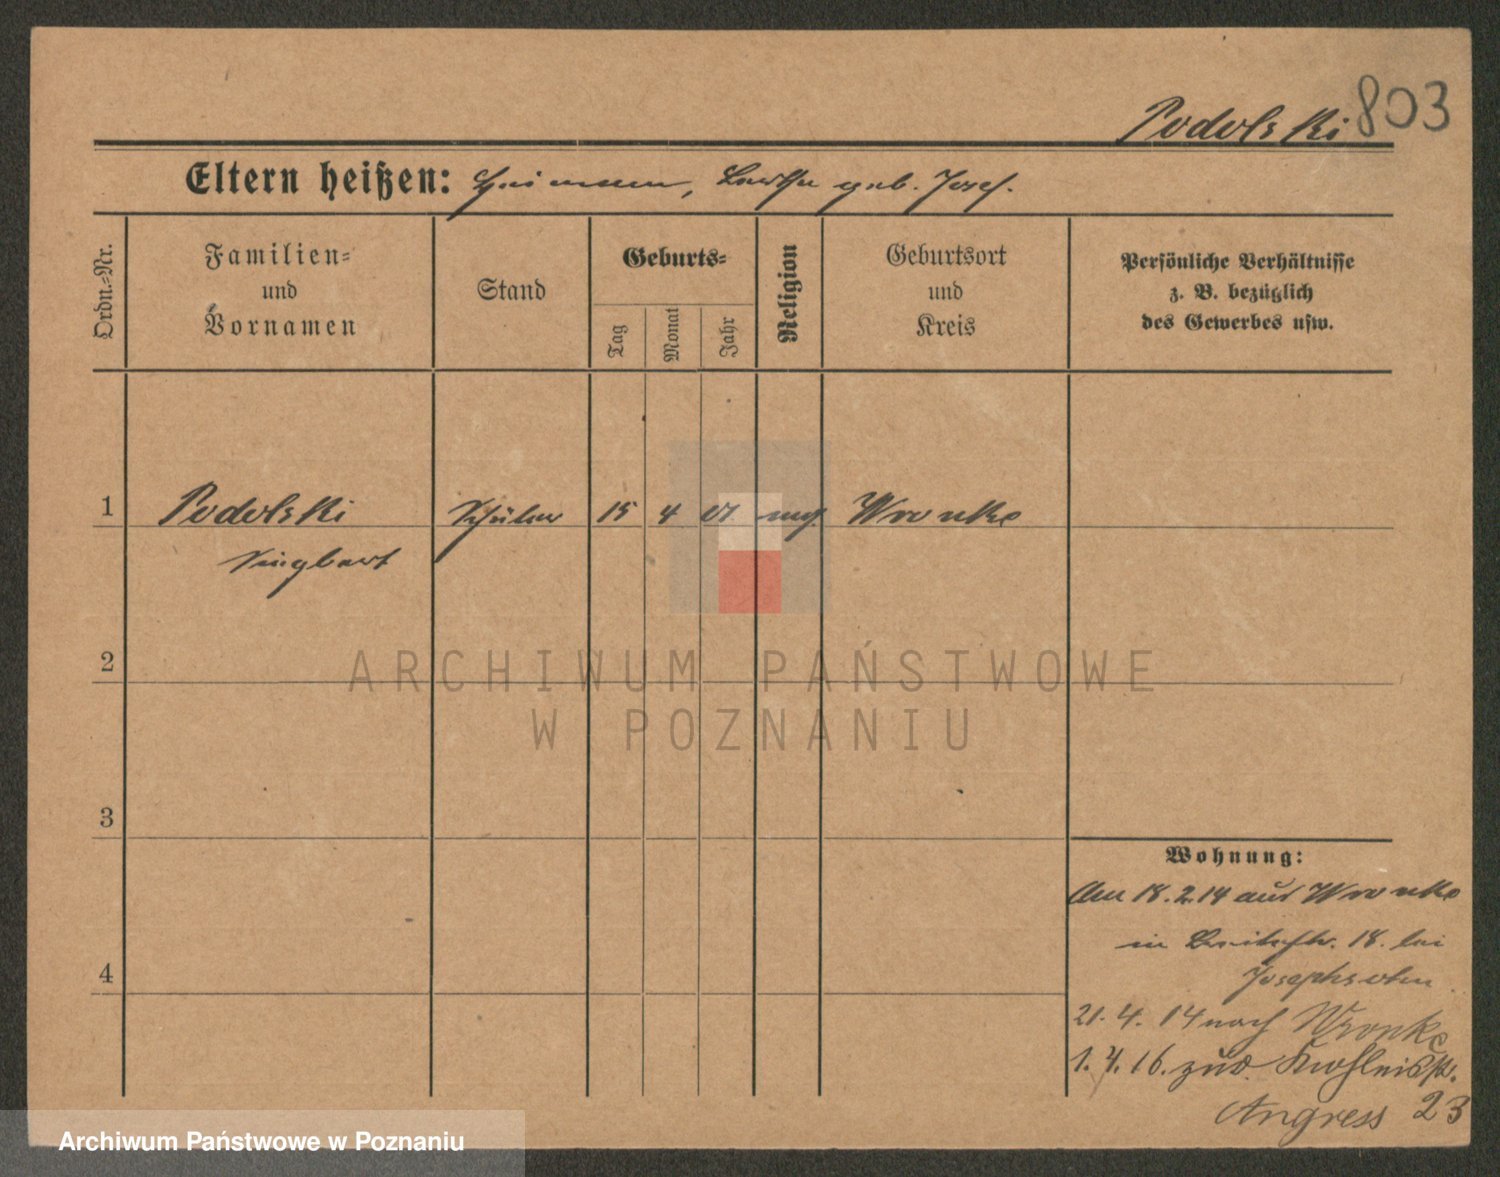 Podolski 803
Eltern heißen: Heimann, Bertha geb. Josef.
Ordn.-Nr.
Familien-
und
Vornamen
Stand
Geburts-
Tag
Monat
Jahr
Religion
Geburtsort
und
Kreis
Persönliche Verhältnisse
z. B. bezüglich
des Gewerbes usw.
1 Podolski Schüler 15 4 01. mos Wronke
Siegbert
2
3
4
Wohnung:
Am 18.2.14 aus Wronke
in Breitestr. 18. bei
Josephsohn
21. 4. 14 nach Wronke
1. 4. 16. zus.
Angress 23
ARCHIWUM PAŃSTWOWE
W POZNANIU
Archiwum Państwowe w Poznaniu